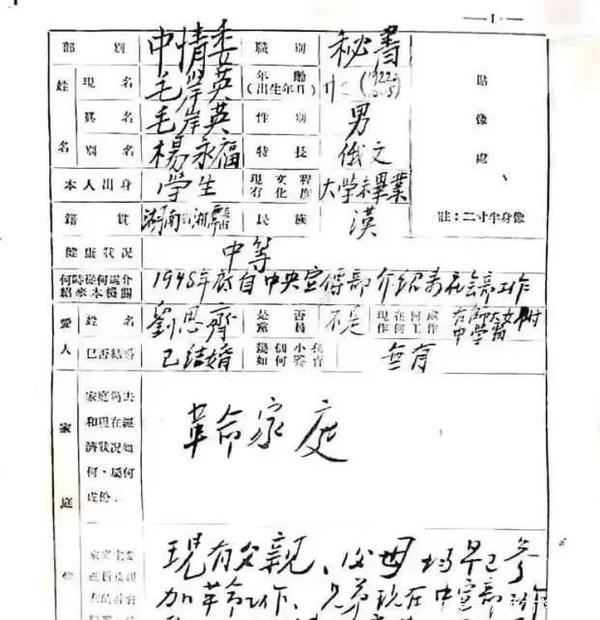 — 1 —
部別 中情委 職別 秘書
姓名 現名 毛岸英 年齡(出生年月) 廿七 (1922 貼像處
真名 毛岸英 性別 男
別名 楊永福 特長 俄文
本人出身 学生 現有文化程度 大学未畢業
籍貫 湖南省湘潭縣 民族 漢 註:二寸半身像
健康狀况 中等
何時從何處介紹來本機關 1948年底自中央宣傳部介紹来社会部工作
愛人 姓名 劉思齊 是否黨員 不是 現在何處作何工作 在師大女附中学習
已否結婚 已结婚 幾個小孩如何養育 無有
家庭 家庭過去和現在經濟狀况如何、屬何成份. 革命家庭
現有父親、父母均早已参
加革命工作、兄弟現在中宣部工作